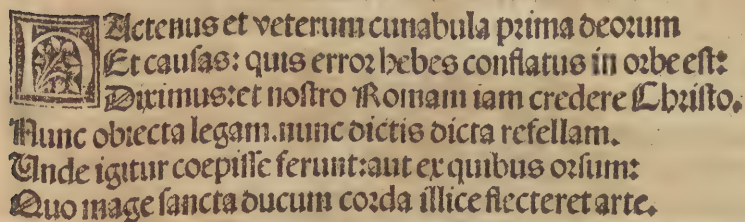 HActenus et veterum cunabula prima deorum
Et causas: quis error hebes conflatus in orbe est:
Diximus: et nostro Romam iam credere Christo.
Nunc obiecta legam. nunc dictis dicta refellam.
Unde igitur coepisse ferunt: aut ex quibus orsum:
Quo mage sancta ducum corda illice flecteret arte.